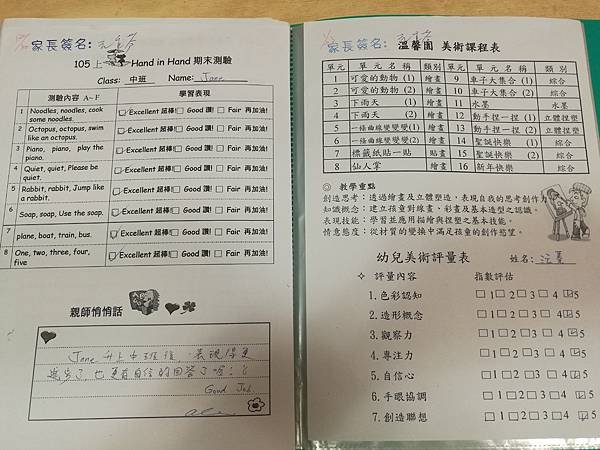 家長簽名:
105 上 Hand in Hand 期末測驗
Class: 中班 Name: Jane
測驗內容 A~F 學習表現
1 Noodles, noodles, cook some noodles. Excellent 超棒! Good 讚! Fair 再加油!
2 Octopus, octopus, swim like an octopus. Excellent 超棒! Good 讚! Fair 再加油!
3 Piano, piano, play the piano. Excellent 超棒! Good 讚! Fair 再加油!
4 Quiet, quiet, Please be quiet. Excellent 超棒! Good 讚! Fair 再加油!
5 Rabbit, rabbit, Jump like a rabbit. Excellent 超棒! Good 讚! Fair 再加油!
6 Soap, soap, Use the soap. Excellent 超棒! Good 讚! Fair 再加油!
7 plane, boat, train, bus. Excellent 超棒! Good 讚! Fair 再加油!
8 One, two, three, four, five Excellent 超棒! Good 讚! Fair 再加油!
親師悄悄話
Jane 升上中班後，表現得更
進步了，也更有自信的回答了喔!
Good Job.
家長簽名:
溫馨園 美術課程表
單元 單元名稱 類別 單元 單元名稱 類別
1 可愛的動物 (1) 繪畫 9 車子大集合 (1) 綜合
2 可愛的動物 (2) 繪畫 10 車子大集合 (2) 綜合
3 下雨天 (1) 繪畫 11 水墨 水墨
4 下雨天 (2) 繪畫 12 動手捏一捏 (1) 立體捏塑
5 一條曲線變變變(1) 繪畫 13 動手捏一捏 (2) 立體捏塑
6 一條曲線變變變(2) 繪畫 14 聖誕快樂 (1) 綜合
7 標籤紙貼一貼 貼畫 15 聖誕快樂 (2) 綜合
8 仙人掌 繪畫 16 新年快樂 綜合
◎ 教學重點
創造思考：透過繪畫及立體塑造，表現自我的思考創作力
知識概念：建立孩童對線畫、彩畫及基本造型之認識。
表現技能：學習並應用描繪與捏塑之基本技能。
情意態度：從材質的變換中滿足孩童的創作慾望。
幼兒美術評量表 姓名:
✧ 評量內容 指數評估
1.色彩認知 □1□2□3 □4☑5
2.造形概念 □1□2□3 □4☑5
3.觀察力 □1□2□3 □4☑5
4.專注力 □1□2□3 □4☑5
5.自信心 □1□2□3 □4☑5
6.手眼協調 □1□2□3 □4☑5
7.創造聯想 □1□2□3 □4☑5